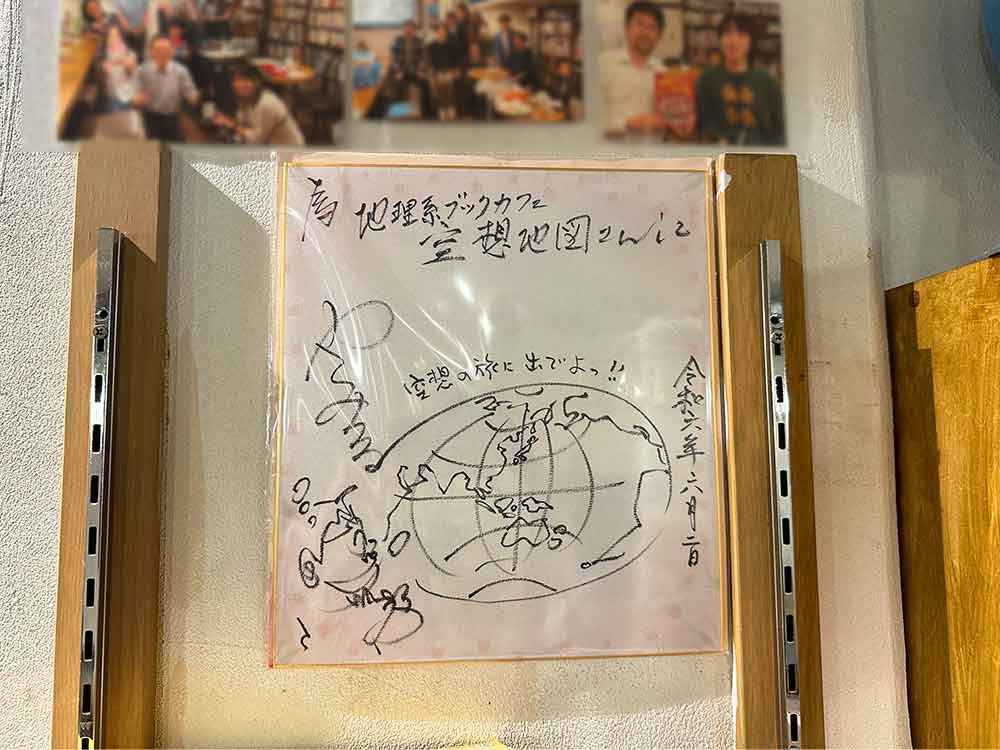 為 地理系ブックカフェ
空想地図さんに
空想の旅に出でよっ!!
令和六年六月二日